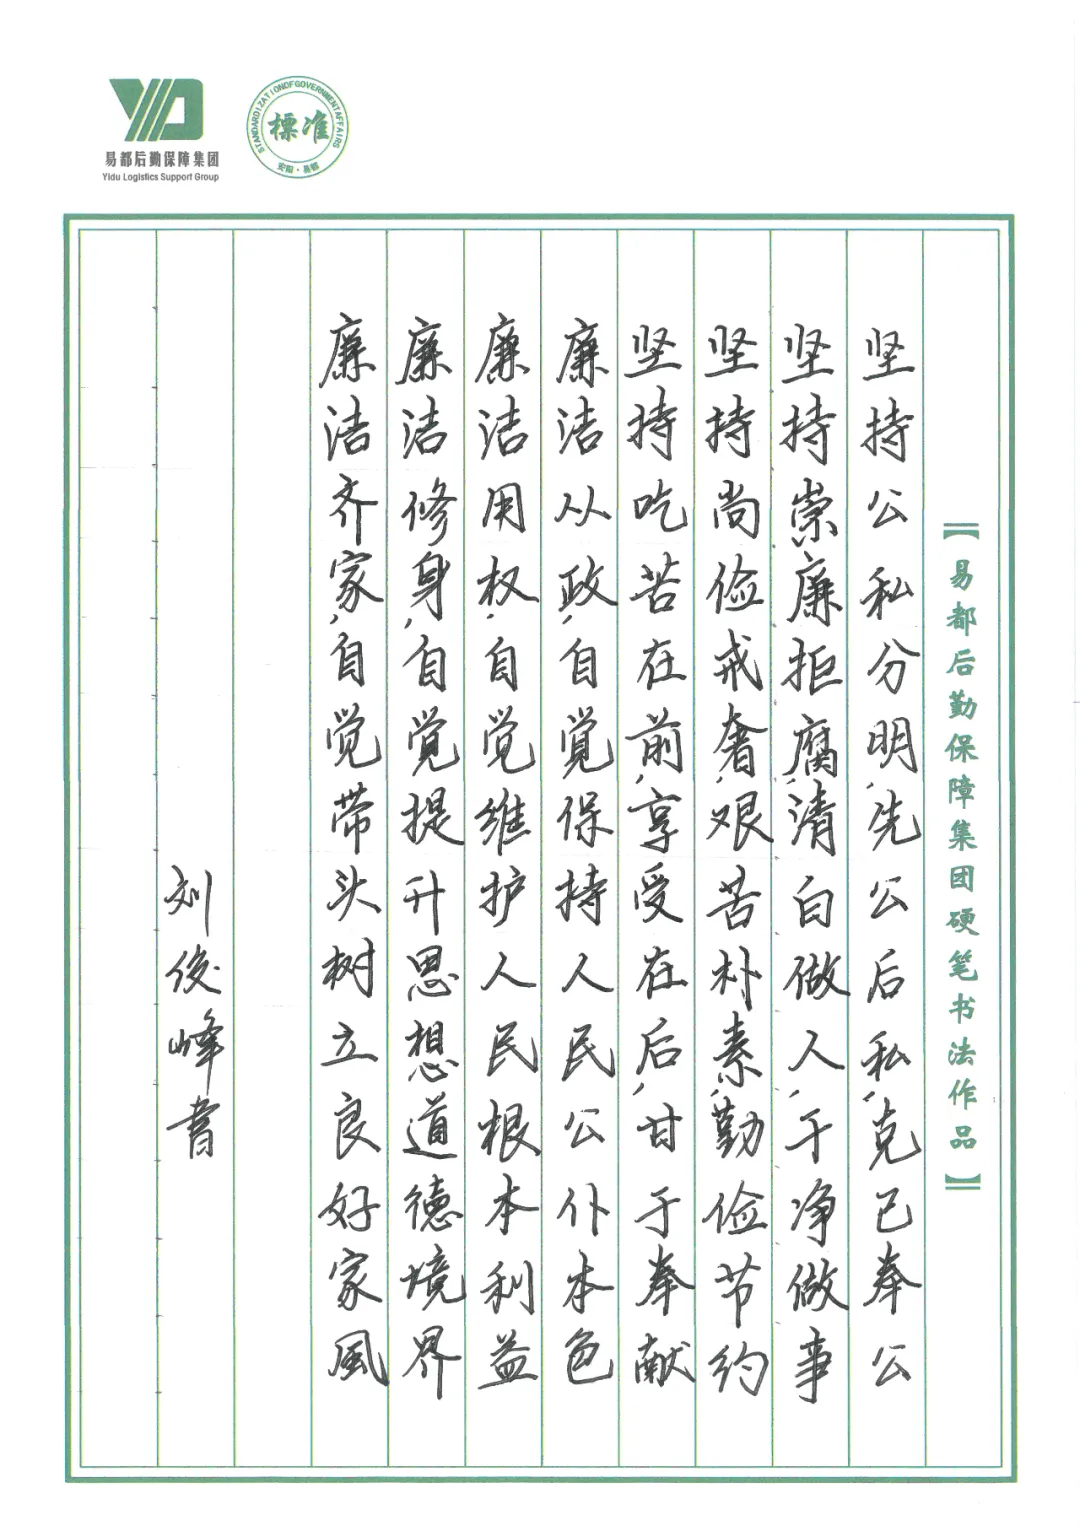 易都后勤保障集团
Yidu Logistics Support Group
STANDARDIZATIONOFGOVERNMENTAFFAIRS
標准
安阳·易都
【易都后勤保障集团硬笔书法作品】
坚持公私分明,先公后私,克己奉公
坚持崇廉拒腐,清白做人,干净做事
坚持尚俭戒奢,艰苦朴素,勤俭节约
坚持吃苦在前,享受在后,甘于奉献
廉洁从政,自觉保持人民公仆本色
廉洁用权,自觉维护人民根本利益
廉洁修身,自觉提升思想道德境界
廉洁齐家,自觉带头树立良好家風
刘俊峰書